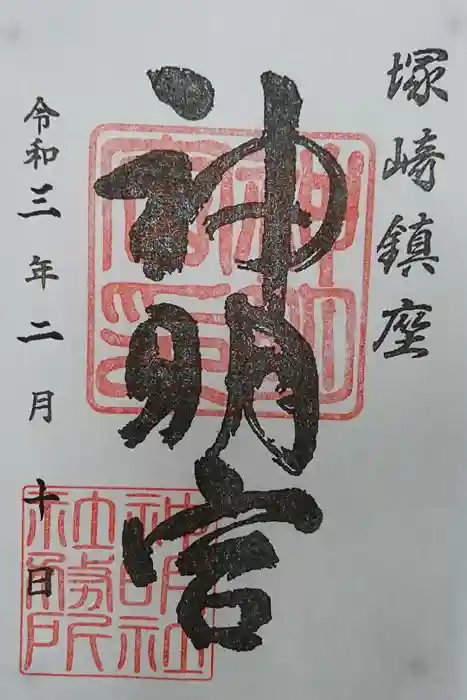 塚崎鎮座
神明宮
令和三年二月十日
神明宮印
神明社社務所